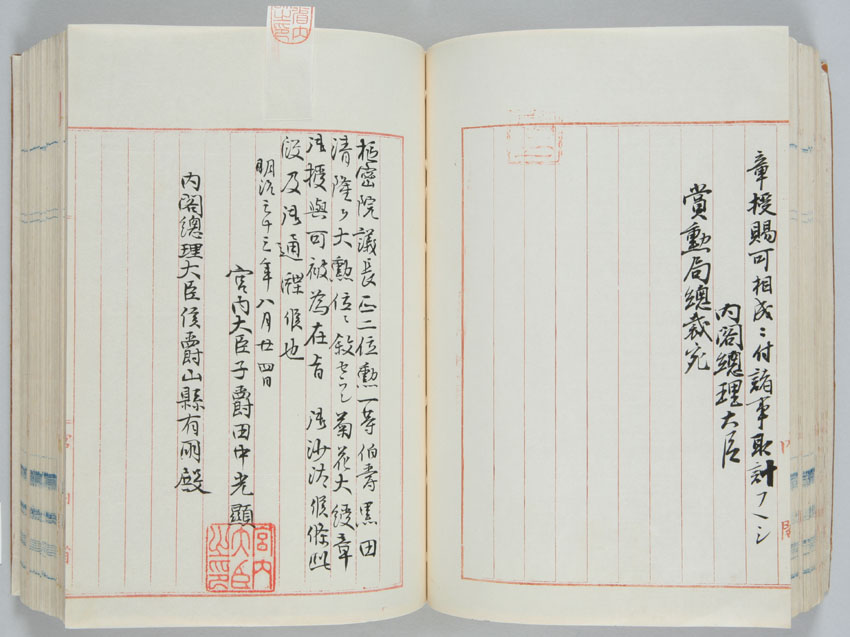 章授賜可相成ニ付諸事取計フヘシ
内閣總理大臣
賞勲局總裁宛
内閣
樞密院議長正二位勲一等伯爵黒田
清隆ヲ大勲位ニ敘セラレ菊花大綬章
御授與可被為在旨御沙汰候條此
段及御通牒候也
明治三十三年八月廿四日
宮内大臣子爵田中光顯
宮内大臣之印
内閣總理大臣侯爵山縣有朋殿
宮内省